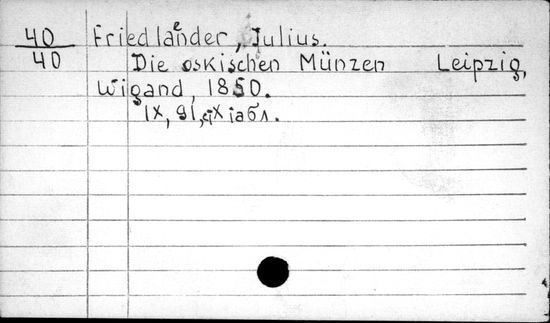 40 Friedlaender, Julius.
40 Die oskischen Münzen Leipzig,
Wigand, 1850.
IX, 91, табл.